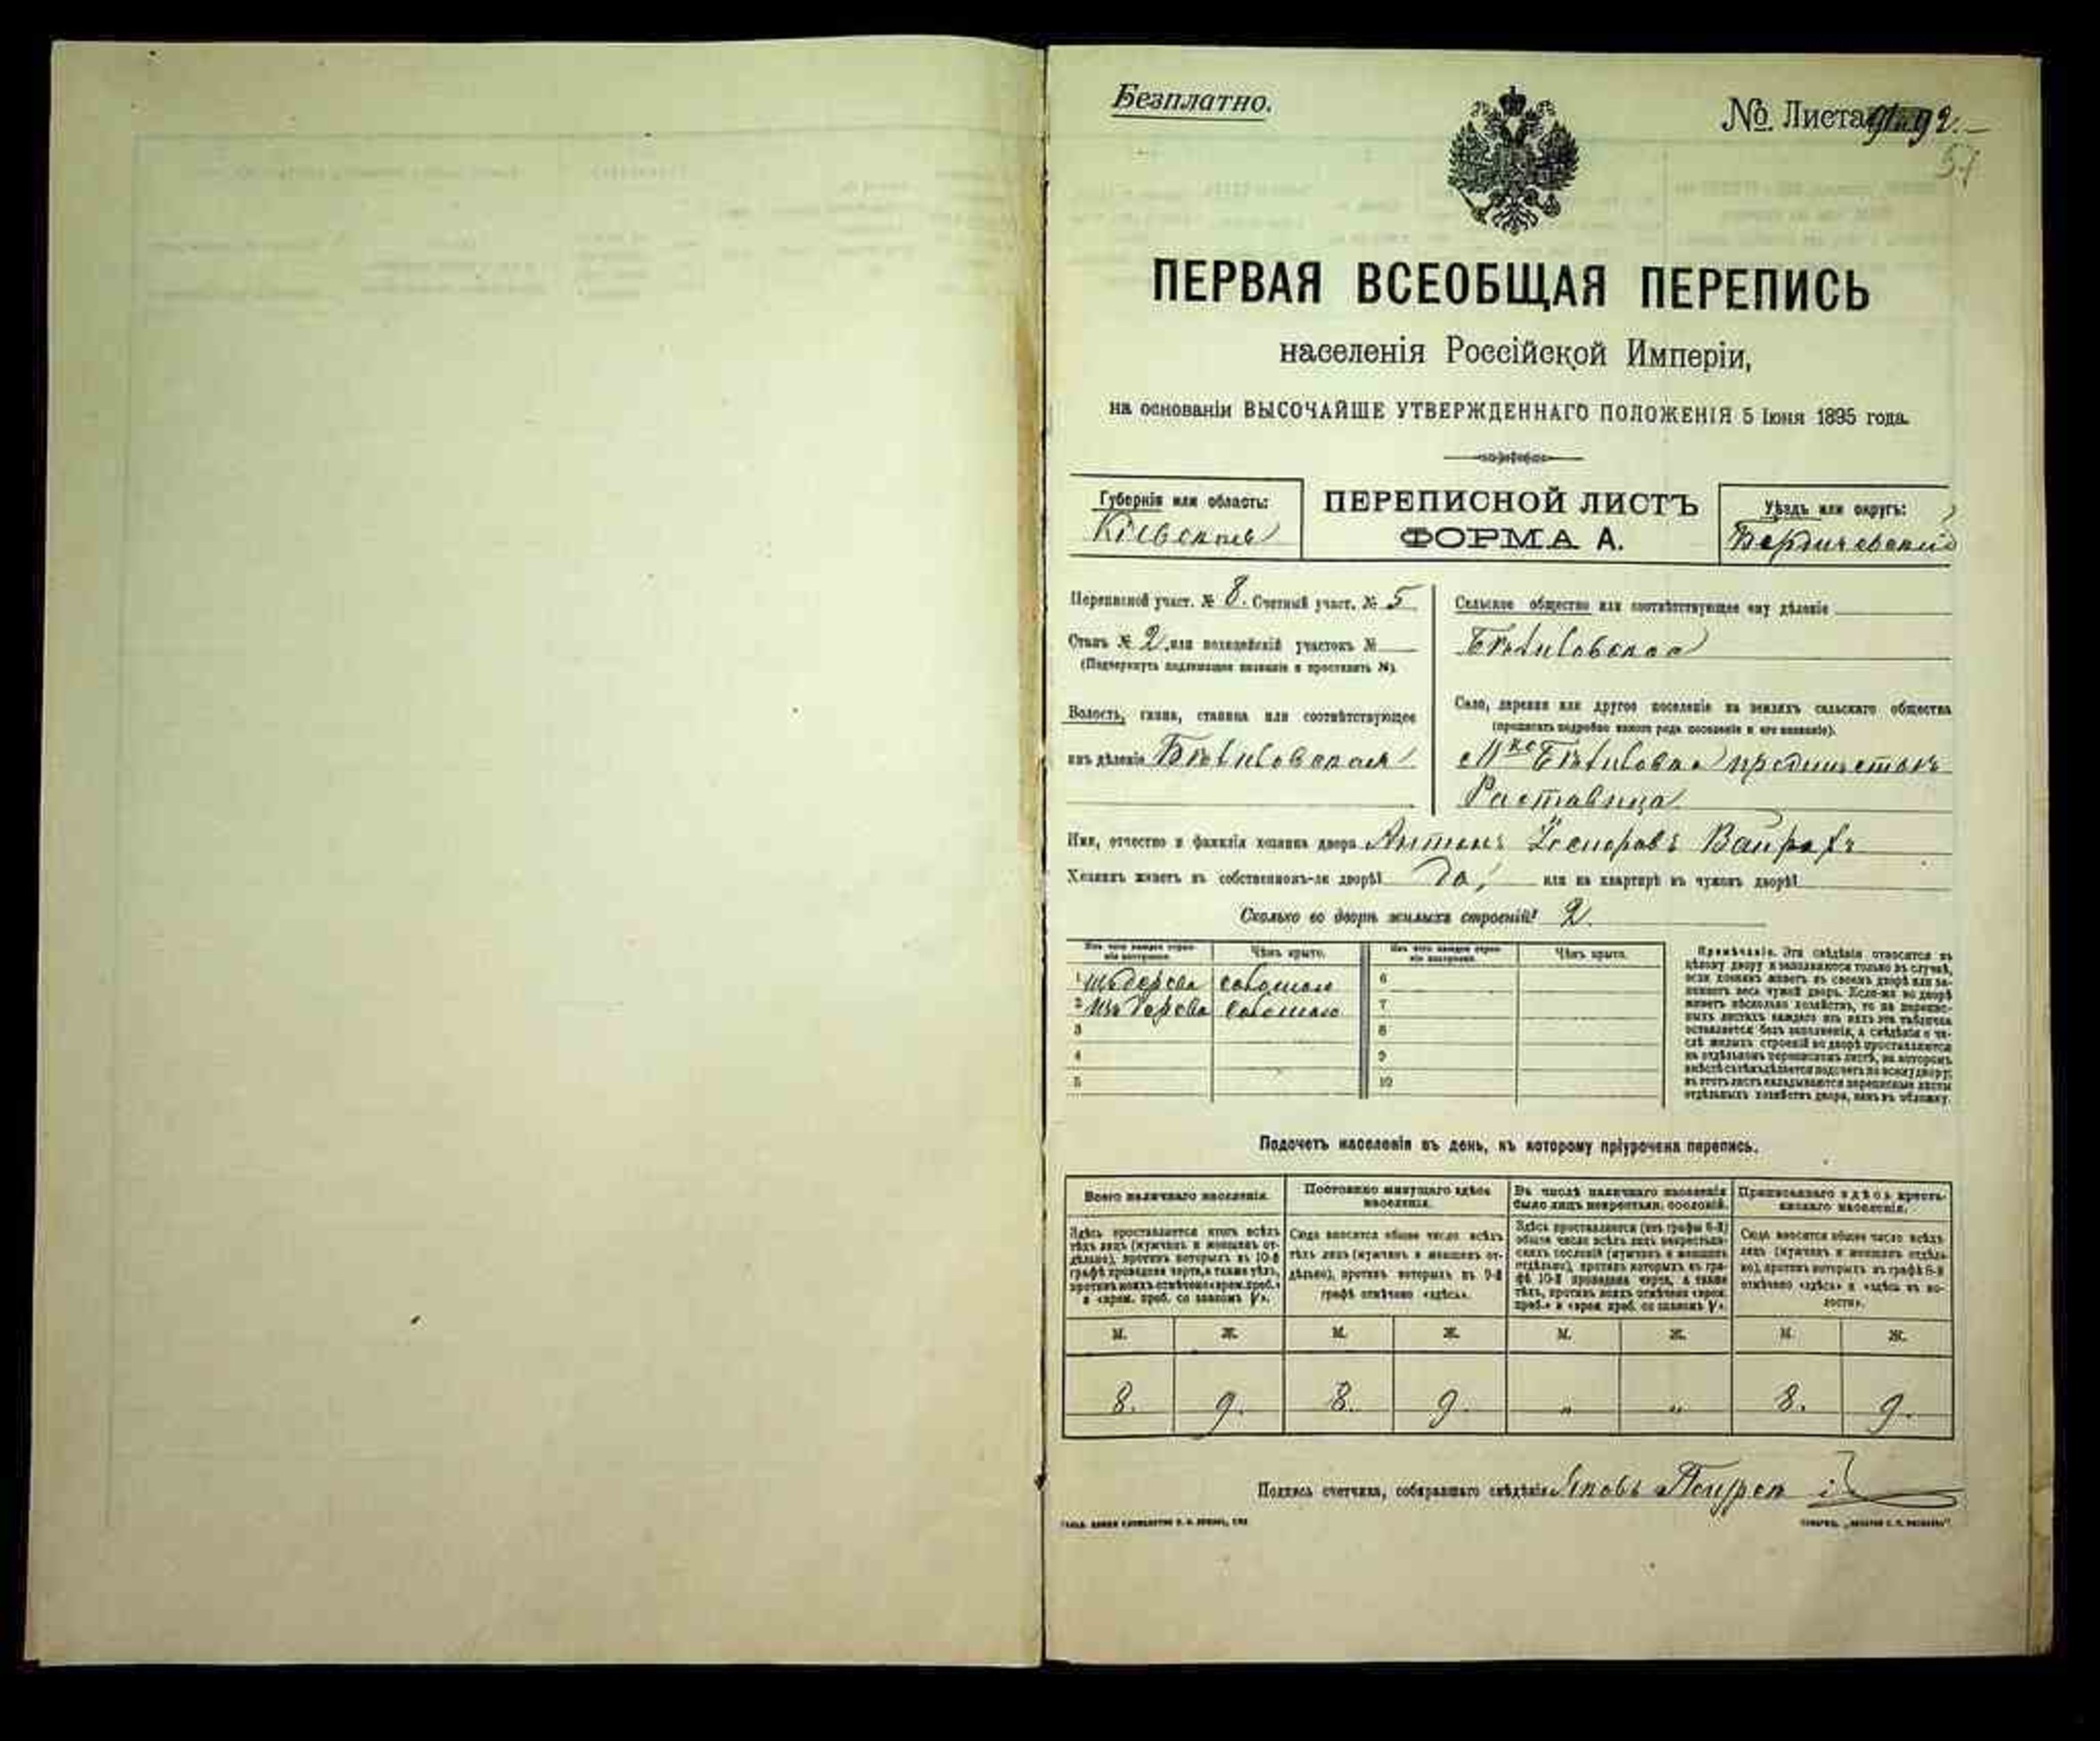 Безплатно.
№ Листа 91 и 92.
57
ПЕРВАЯ ВСЕОБЩАЯ ПЕРЕПИСЬ
населенія Россійской Имперіи,
на основаніи ВЫСОЧАЙШЕ УТВЕРЖДЕННАГО ПОЛОЖЕНІЯ 5 Іюня 1895 года.
Губернія или область:
Кіевская
ПЕРЕПИСНОЙ ЛИСТЪ
ФОРМА А.
Уѣздъ или округъ:
Бердичевскій
Переписной участ. № 8. Счетный участ. № 5
Станъ № 2, или полицейскій участокъ №
(Подчеркнуть надлежащее названіе и проставить №).
Волость, гмина, станица или соотвѣтствующее
имъ дѣленіе Бѣлиловская
Сельское общество или соотвѣтствующее ему дѣленіе
Бѣлиловское
Село, деревня или другое поселеніе на земляхъ сельскаго общества
(прописать подробно какого рода поселеніе и его названіе).
М-ко Бѣлиловка предмѣстье
Раставица
Имя, отчество и фамилія хозяина двора Антонъ
Хозяинъ живетъ въ собственномъ-ли дворѣ? да, или на квартирѣ въ чужомъ дворѣ?
Сколько во дворѣ жилыхъ строеній? 2.
Изъ чего каждое строеніе построено. Чѣмъ крыто. Изъ чего каждое строеніе построено. Чѣмъ крыто.
1 изъ дерева соломою 6
2 изъ дерева соломою 7
3 8
4 9
5 10
Примѣчаніе. Эти свѣдѣнія относятся къ
цѣлому двору и заполняются только въ случаѣ,
если хозяинъ живетъ въ своемъ дворѣ или за-
нимаетъ весь чужой дворъ. Если-же во дворѣ
живетъ нѣсколько хозяйствъ, то на перепис-
ныхъ листахъ каждаго изъ нихъ эта табличка
оставляется безъ заполненія, а свѣдѣнія о чи-
слѣ жилыхъ строеній во дворѣ проставляются
на отдѣльномъ переписномъ листѣ, на которомъ
вмѣстѣ съ тѣмъ дѣлается подсчетъ по всему двору;
въ этотъ листъ вкладываются переписные листы
отдѣльныхъ хозяйствъ двора, какъ въ обложку.
Подсчетъ населенія въ день, къ которому пріурочена перепись.
Всего наличнаго населенія.
Здѣсь проставляется итогъ всѣхъ
тѣхъ лицъ (мужчинъ и женщинъ от-
дѣльно), противъ которыхъ въ 10-й
графѣ проведена черта, а также тѣхъ,
противъ коихъ отмѣчено «врем. преб.»
и «врем. преб. со знакомъ V».
Постоянно живущаго здѣсь
населенія.
Сюда вносится общее число всѣхъ
тѣхъ лицъ (мужчинъ и женщинъ от-
дѣльно), противъ которыхъ въ 9-й
графѣ отмѣчено «здѣсь».
Въ числѣ наличнаго населенія
было лицъ некрестьян. сословій.
Здѣсь проставляется (изъ графы 6-й)
общее число всѣхъ лицъ некрестьян-
скихъ сословій (мужчинъ и женщинъ
отдѣльно), противъ которыхъ въ гра-
фѣ 10-й проведена черта, а также
тѣхъ, противъ коихъ отмѣчено «врем.
преб.» и «врем. преб. со знакомъ V».
Приписаннаго здѣсь кресть-
янскаго населенія.
Сюда вносится общее число всѣхъ
лицъ (мужчинъ и женщинъ отдѣль-
но), противъ которыхъ въ графѣ 8-й
отмѣчено «здѣсь» и «здѣсь въ во-
лости».
М. Ж. М. Ж. М. Ж. М. Ж.
8. 9. 8. 9. „ „ 8. 9.
Подпись счетчика, собиравшаго свѣдѣнія Яковъ